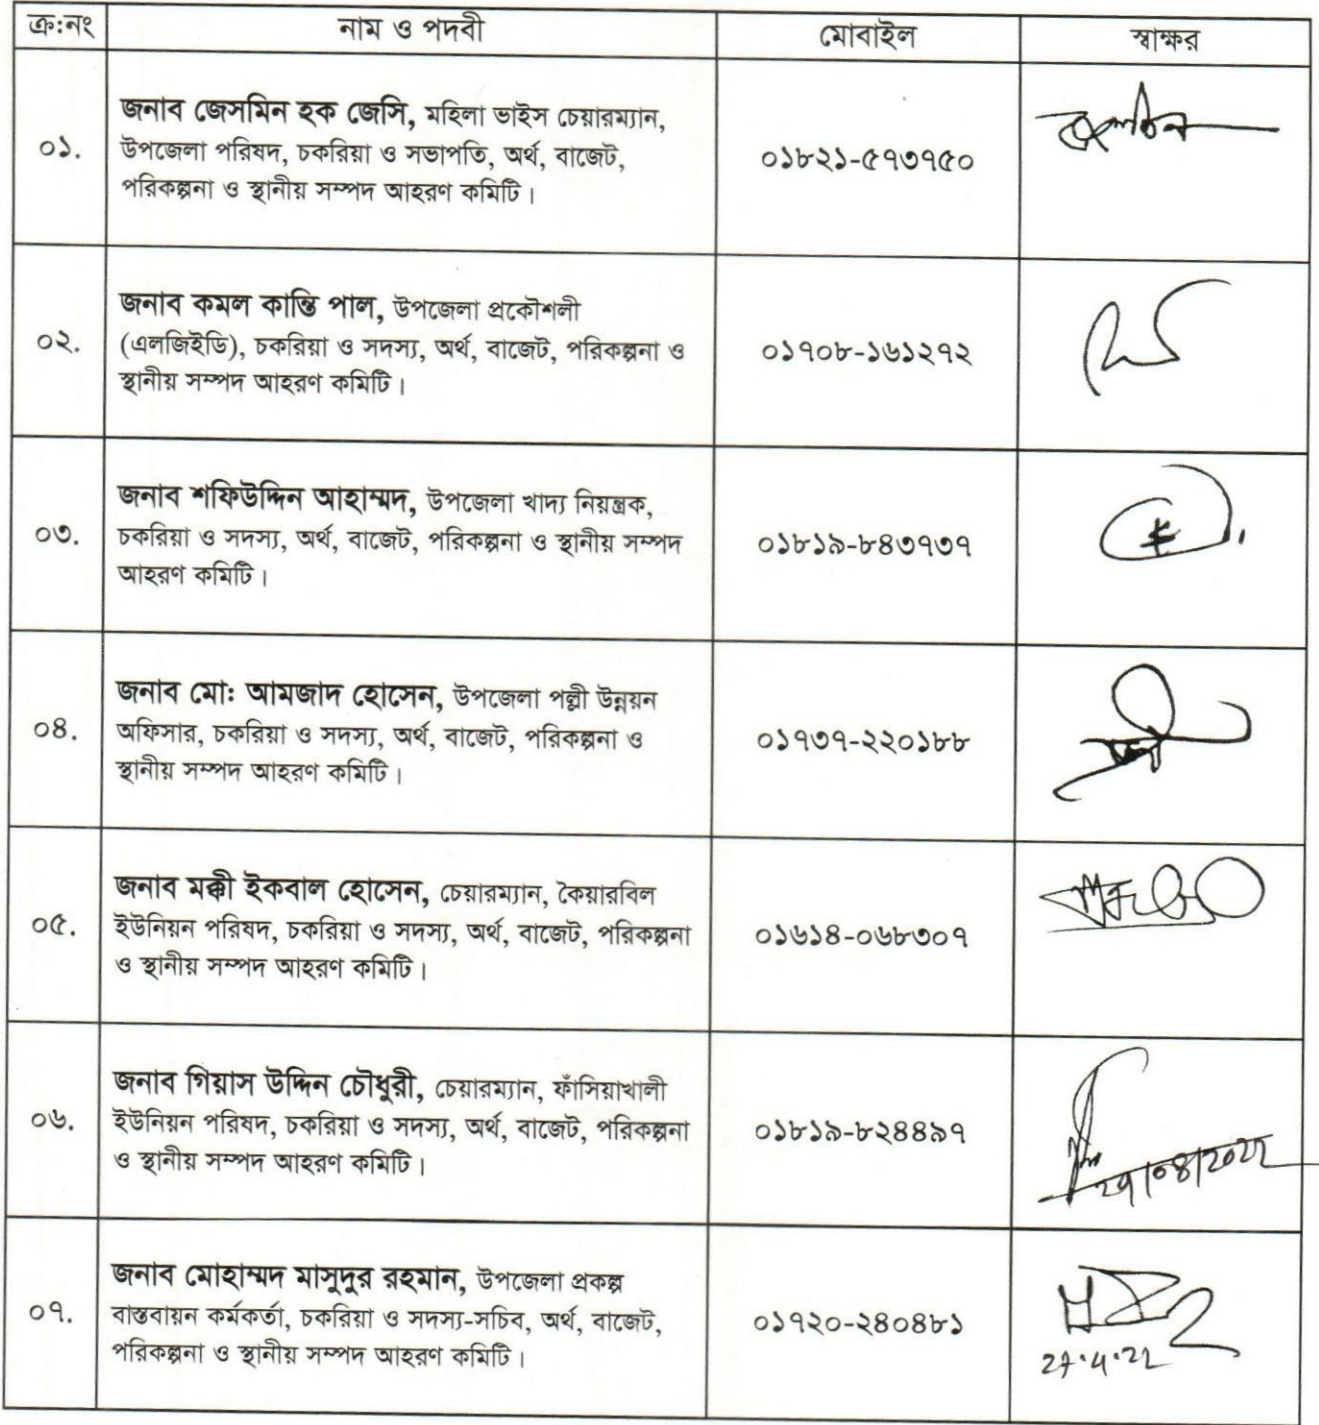 ক্র:নং নাম ও পদবী মোবাইল স্বাক্ষর
০১.
জনাব জেসমিন হক জেসি, মহিলা ভাইস চেয়ারম্যান,
উপজেলা পরিষদ, চকরিয়া ও সভাপতি, অর্থ, বাজেট,
পরিকল্পনা ও স্থানীয় সম্পদ আহরণ কমিটি।
০১৮২১-৫৭৩৭৫০
০২.
জনাব কমল কান্তি পাল, উপজেলা প্রকৌশলী
(এলজিইডি), চকরিয়া ও সদস্য, অর্থ, বাজেট, পরিকল্পনা ও
স্থানীয় সম্পদ আহরণ কমিটি।
০১৭০৮-১৬১২৭২
০৩.
জনাব শফিউদ্দিন আহাম্মদ, উপজেলা খাদ্য নিয়ন্ত্রক,
চকরিয়া ও সদস্য, অর্থ, বাজেট, পরিকল্পনা ও স্থানীয় সম্পদ
আহরণ কমিটি।
০১৮১৯-৮৪৩৭৩৭
০৪.
জনাব মো: আমজাদ হোসেন, উপজেলা পল্লী উন্নয়ন
অফিসার, চকরিয়া ও সদস্য, অর্থ, বাজেট, পরিকল্পনা ও
স্থানীয় সম্পদ আহরণ কমিটি।
০১৭৩৭-২২০১৮৮
০৫.
জনাব মক্কী ইকবাল হোসেন, চেয়ারম্যান, কৈয়ারবিল
ইউনিয়ন পরিষদ, চকরিয়া ও সদস্য, অর্থ, বাজেট, পরিকল্পনা
ও স্থানীয় সম্পদ আহরণ কমিটি।
০১৬১৪-০৬৮৩০৭
০৬.
জনাব গিয়াস উদ্দিন চৌধুরী, চেয়ারম্যান, ফাঁসিয়াখালী
ইউনিয়ন পরিষদ, চকরিয়া ও সদস্য, অর্থ, বাজেট, পরিকল্পনা
ও স্থানীয় সম্পদ আহরণ কমিটি।
০১৮১৯-৮২৪৪৯৭
২৭/০৪/২০২২
০৭.
জনাব মোহাম্মদ মাসুদুর রহমান, উপজেলা প্রকল্প
বাস্তবায়ন কর্মকর্তা, চকরিয়া ও সদস্য-সচিব, অর্থ, বাজেট,
পরিকল্পনা ও স্থানীয় সম্পদ আহরণ কমিটি।
০১৭২০-২৪০৪৮১
27.4.22